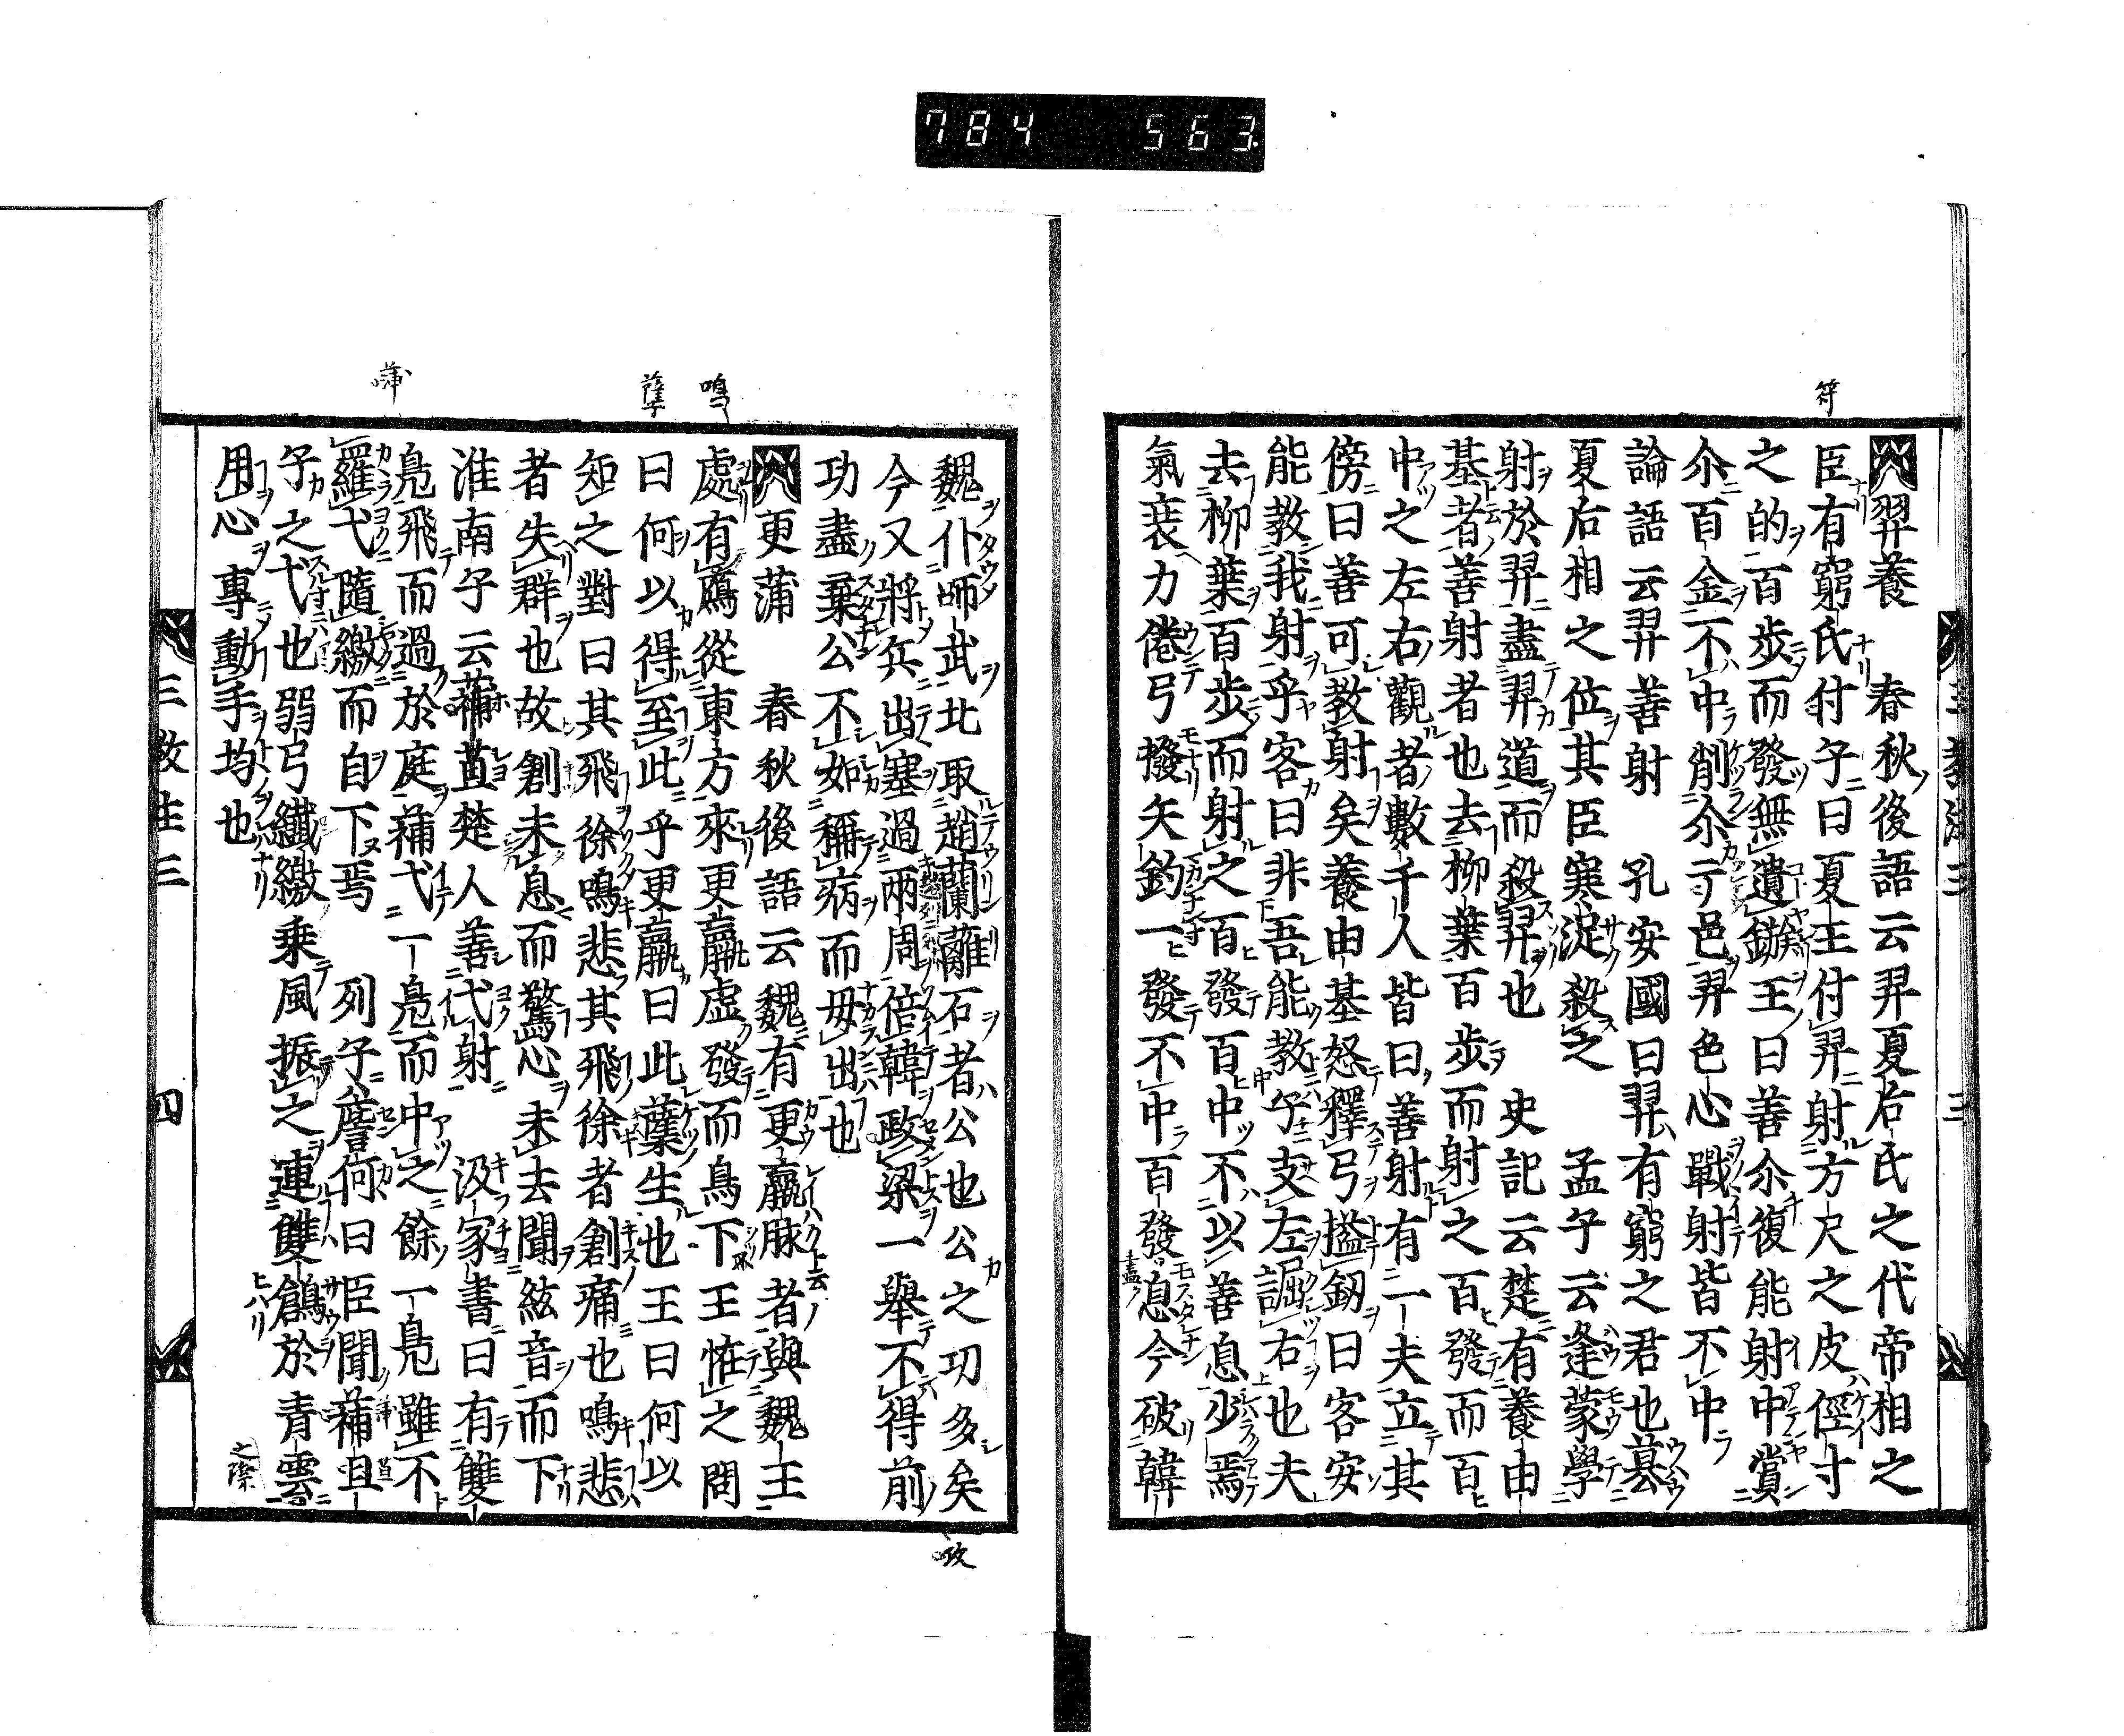 784 563
羿養 春秋後語云羿夏后氏之代帝相之
臣有窮氏付子曰夏王付羿射方尺之皮俓寸
之的百步而發無遺鏃王曰善尒復能射中賞
尒百金不中削尒一丁邑羿色心戰射皆不中
論語云羿善射 孔安國曰羿有窮之君也墓
夏后相之位其臣寒浞殺之 孟子云逢蒙學
射於羿盡羿道而殺羿也 史記云楚有養由
基者善射者也去柳葉百步而射之百發而百
中之左右觀者數千人皆曰善射有一夫立其
傍曰善可教射矣養由基怒釋弓搤釼曰客安
能教我射乎客曰非吾能教子支左詘右也夫
去柳葉百步而射之百發百中不以善息少焉
氣衰力倦弓撥矢釣一發不中百發息今破韓
魏仆師武北取趙蘭離石者公也公之功多矣
今又將兵出塞過兩周倍韓政梁一舉不得前
功盡棄公不如稱病而毋出也
更蒲 春秋後語云魏有更羸脉者與魏王
處有鴈從東方來更羸虛發而鳥下王恠之問
曰何以得至此乎更羸曰此孽生也王曰何以
知之對曰其飛徐鳴悲其飛徐者創痛也鳴悲
者失群也故創未息而驚心未去聞絃音而下
淮南子云蒱苴楚人善弋射 汲冢書曰有雙
鳧飛而過於庭蒱弋一鳧而中之餘一鳧雖不
羅弋隨繳而自下焉 列子詹何曰臣聞蒱且
子之弋也弱弓纖繳乘風振之連雙鶬於青雲
用心專動手均也
符
鳴
孽
蒲
攻
之際
三教注三 三
三教注三 四